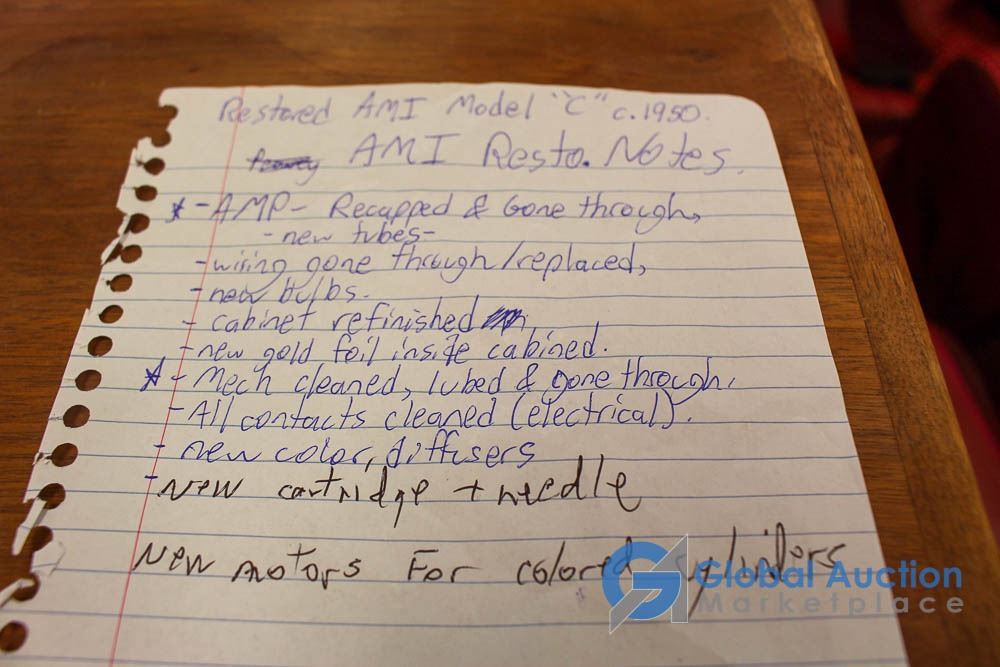 Restored AMI Model "C" c.1950.
AMI Resto. Notes.
* - AMP - Recapped & Gone through,
- new tubes -
- wiring gone through/replaced,
- new bulbs.
- cabinet refinished
- new gold foil inside cabined.
* - Mech cleaned, lubed & gone through.
- All contacts cleaned (electrical).
- new color, diffusers
- New cartridge + needle
New motors For colored cylinders
Global Auction
Marketplace